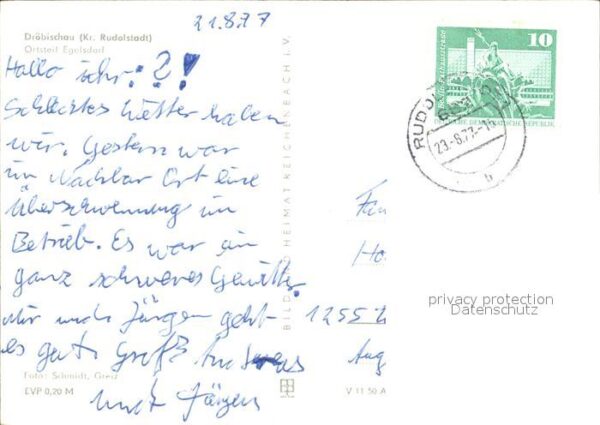 21.8.77
Dröbischau (Kr. Rudolstadt)
Ortsteil Egelsdorf
Hallo ihr: ? !
Schlechtes Wetter haben
wir. Gestern war
im Nachbar Ort eine
Überschwemmung im
Betrieb. Es war ein
ganz schweres Gewitter.
Mir und Jürgen geht
es gut. Gruß Andreas
und Jürgen
Foto: Schmidt, Greiz
EVP 0,20 M
BILD HEIMAT REICHENBACH I. V.
V 11 50 A
10
DEUTSCHE DEMOKRATISCHE REPUBLIK
RUDO
23.-8.77.-1
b
Fam
Ho
1255
Aug
privacy protection
Datenschutz